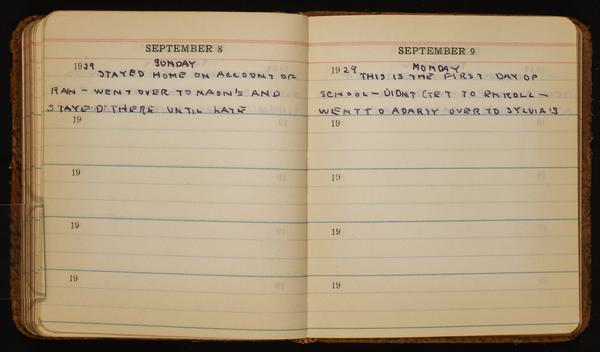 SEPTEMBER 8
1929 SUNDAY
STAYED HOME ON ACCOUNT OF
RAN - WENT OVER TO NAOMI'S AND
STAYED THERE UNTIL LATE
19
19
19
19
SEPTEMBER 9
1929 MONDAY
THIS IS THE FIRST DAY OF
SCHOOL - DIDNT GET TO ENROLL -
WENT TO A PARTY OVER TO SYLVIA'S
19
19
19
19